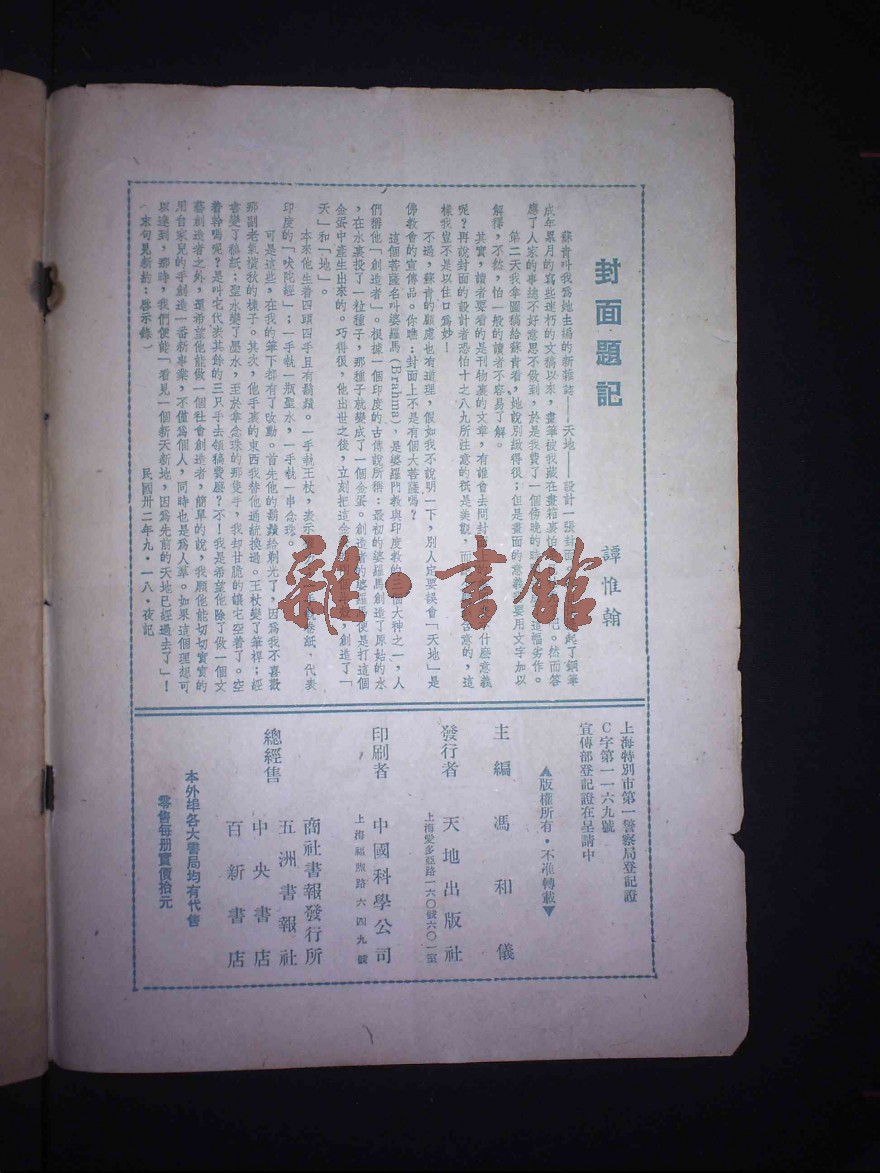 封面題記
譚惟翰
蘇青叫我爲她主編的新雜誌——天地——設計一張封面
起了鋼筆
成年累月的爲些速朽的文稿以來，畫筆被我藏在畫箱裏怕
已。然而答
應了人家的事總不好意思不做到，於是我費了一個傍晚的時
這幅劣作。
第二天我拿圖稿給蘇青看，她說別緻得很；但是畫面的意義
要用文字加以
解釋，不然，怕一般的讀者不容易了解。
其實，讀者要看的是刊物裏的文章，有誰會去問封
什麼意義
呢？再說封面的設計者恐怕十之八九所注意的祇是美觀，而
含意的，這
樣我豈不是以住口爲妙！
不過，蘇青的顧慮也有道理，假如我不說明一下，別人定要誤會「天地」是
佛教會的宣傳品。你瞧：封面上不是有個大菩薩嗎？
這個菩薩名叫婆羅馬(Brahma)，是婆羅門教與印度教的三個大神之一，人
們稱他「創造者」。根據一個印度的古傳說所稱：最初的婆羅馬創造了原始的水
，在水裏投了一粒種子，那種子就變成了一個金蛋。創造者的婆羅馬便是打這個
金蛋中產生出來的。巧得很，他出世之後，立刻把這金
創造了「
天」和「地」。
本來他生着四頭四手且有鬍鬚。一手執王杖，表示
卷紙，代表
印度的「吠陀經」；一手執一瓶聖水，一手執一串念珠。
可是這些，在我的筆下都有了改動。首先他的鬍鬚給剃光了，因爲我不喜歡
那副老氣橫秋的樣子。其次，他手裏的東西我替他通統換過。王杖變了筆桿；經
書變了稿紙；聖水變了墨水，至於拿念珠的那隻手，我却甘脆的讓它空着了。空
着幹嗎呢？是叫它代表其餘的三只手去領稿費麽？不！我是希望他除了做一個文
藝創造者之外，還希望他能做一個社會創造者，簡單的說，我願他能切切實實的
用自家兒的手創造一番新事業，不僅爲個人，同時也是爲人羣。如果這個理想可
以達到，那時，我們便能「看見一個新天新地，因爲先前的天地已經過去了」！
（末句見新約：啓示錄）
民國卅二年九・一八・夜記
上海特別市第一警察局登記證
C字第一一六九號
宣傳部登記證在呈請中
▲版權所有・不准轉載▼
主編 馮和儀
發行者 天地出版社
上海愛多亞路一六〇號六〇一室
印刷者 中國科學公司
上海福煦路六四九號
總經售
商社書報發行所
五洲書報社
中央書店
百新書店
本外埠各大書局均有代售
零售每册實價拾元
雜・書館